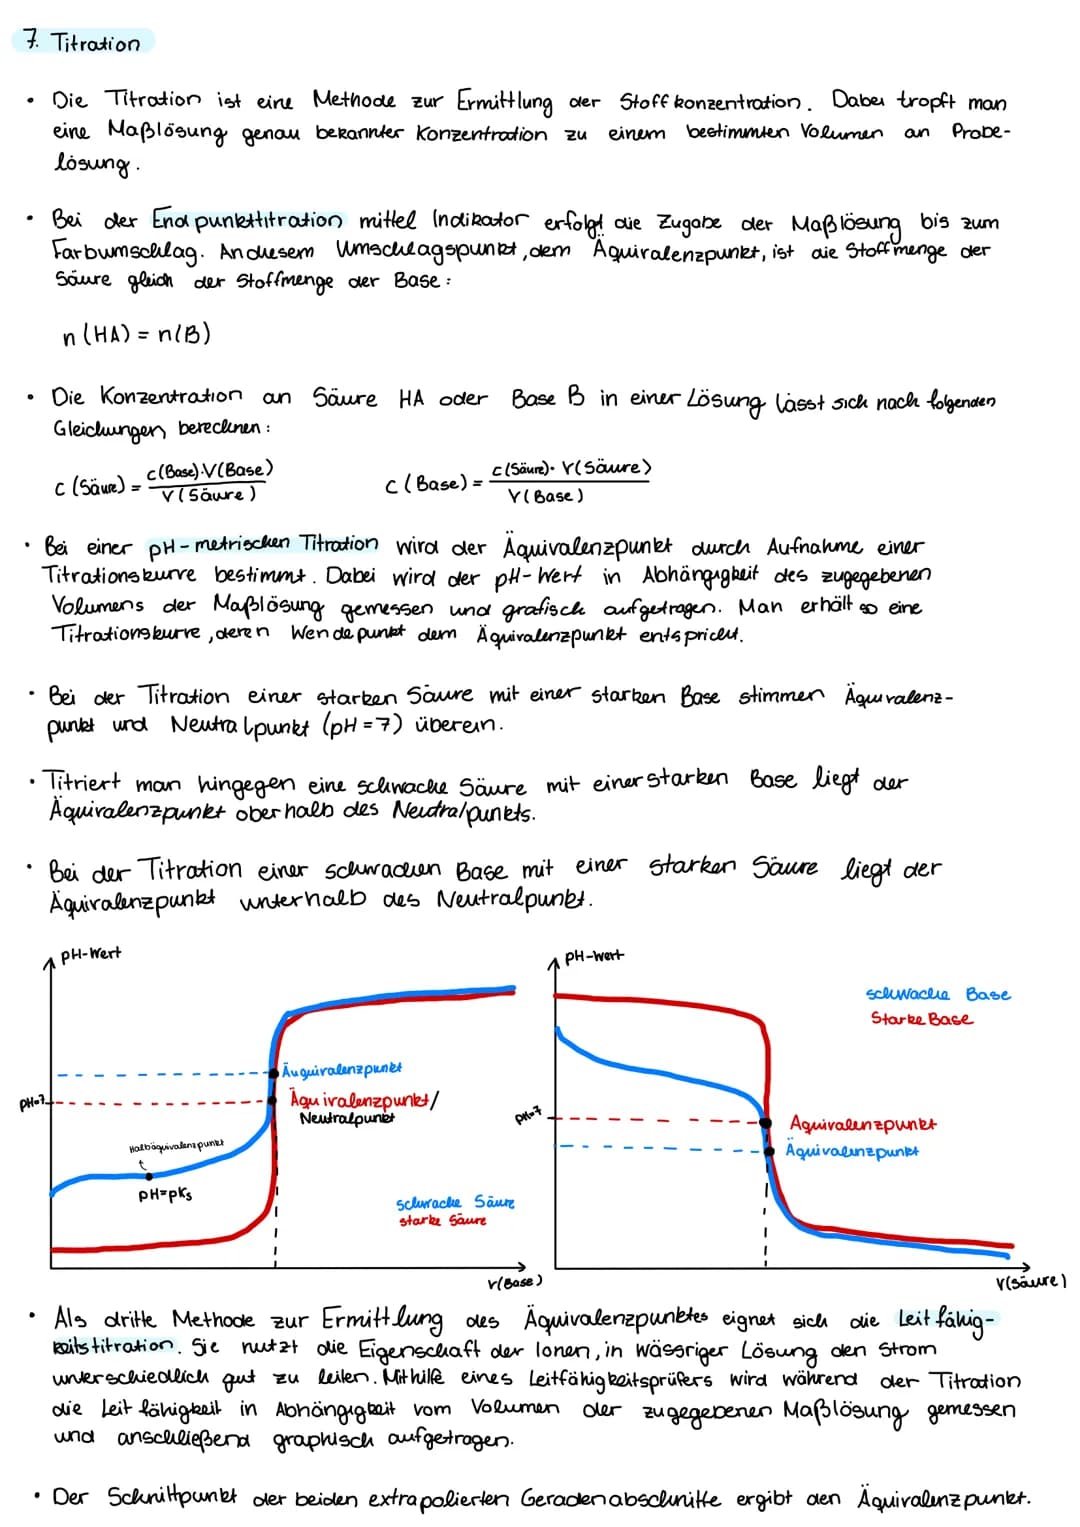 7. Titration
• Die Titration ist eine Methode zur Ermittlung der Stoffkonzentration. Dabei tropft man
eine Maßlösung genau bekannter Konzentration zu einem bestimmten Volumen an Probe-
lösung.
• Bei der Endpunkttitration mittel Indikator erfolgt die Zugabe der Maßlösung bis zum
Farbumschlag. An diesem Umschlagspunkt, dem Äquivalenzpunkt, ist die Stoffmenge der
Säure gleich der Stoffmenge der Base:
n(HA) = n(B)
• Die Konzentration an Säure HA oder Base B in einer Lösung lässt sich nach folgenden
Gleichungen berechnen:
c (Säure) = c(Base)·V(Base) / V(Säure)
c (Base) = c(Säure)·V(Säure) / V(Base)
• Bei einer pH-metrischen Titration wird der Äquivalenzpunkt durch Aufnahme einer
Titrationskurve bestimmt. Dabei wird der pH-Wert in Abhängigkeit des zugegebenen
Volumens der Maßlösung gemessen und grafisch aufgetragen. Man erhält so eine
Titrationskurve, deren Wendepunkt dem Äquivalenzpunkt entspricht.
• Bei der Titration einer starken Säure mit einer starken Base stimmen Äquivalenz-
punkt und Neutralpunkt (pH=7) überein.
• Titriert man hingegen eine schwache Säure mit einer starken Base liegt der
Äquivalenzpunkt oberhalb des Neutralpunkts.
• Bei der Titration einer schwachen Base mit einer starken Säure liegt der
Äquivalenzpunkt unterhalb des Neutralpunkt.
pH-Wert
Äuquivalenzpunkt
pH=7
Äquivalenzpunkt/
Neutralpunkt
Halbäquivalenzpunkt
pH=pKs
schwache Säure
starke Säure
V(Base)
pH-Wert
schwache Base
Starke Base
pH=7
Äquivalenzpunkt
Äquivalenzpunkt
V(Säure)
• Als dritte Methode zur Ermittlung des Äquivalenzpunktes eignet sich die Leitfähig-
keitstitration. Sie nutzt die Eigenschaft der Ionen, in wässriger Lösung den Strom
unterschiedlich gut zu leiten. Mithilfe eines Leitfähigkeitsprüfers wird während der Titration
die Leitfähigkeit in Abhängigkeit vom Volumen der zugegebenen Maßlösung gemessen
und anschließend graphisch aufgetragen.
• Der Schnittpunkt der beiden extrapolierten Geradenabschnitte ergibt den Äquivalenzpunkt.